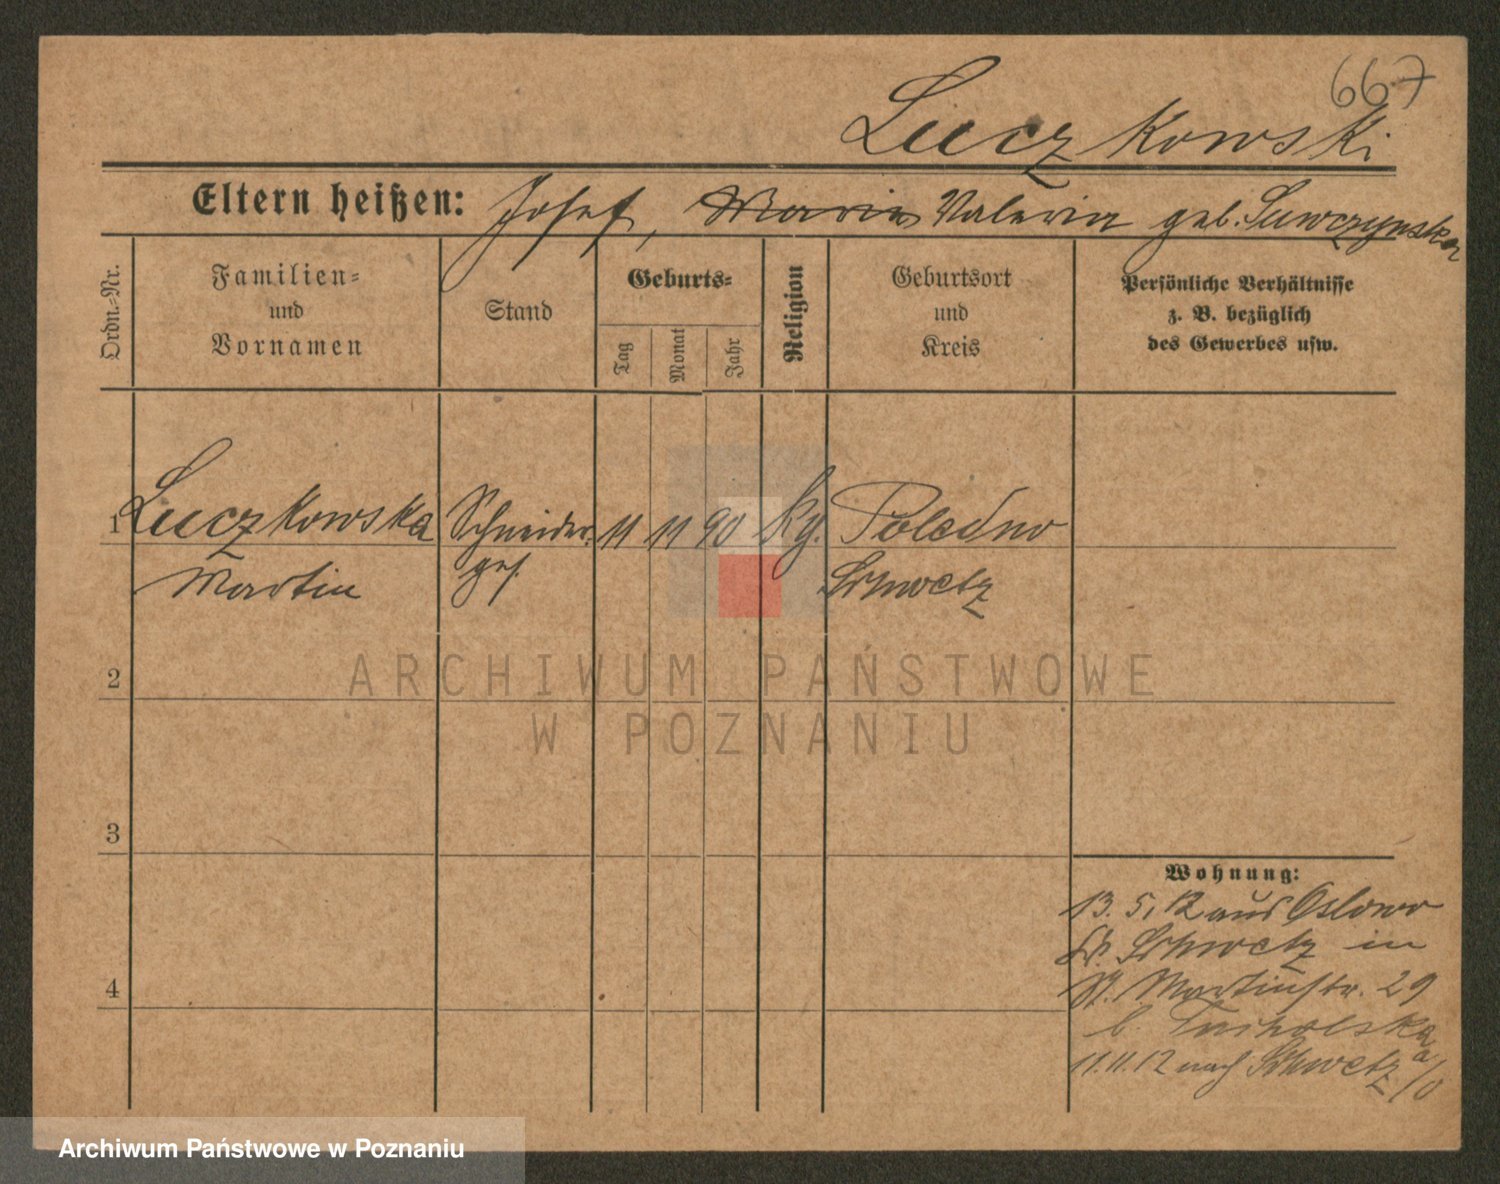 667
Luczkowski
Eltern heißen: Josef, Maria Valeria geb. Suwczynska
Ordn.-Nr.
Familien-
und
Vornamen
Stand
Geburts-
Tag
Monat
Jahr
Religion
Geburtsort
und
Kreis
Persönliche Verhältnisse
z. B. bezüglich
des Gewerbes usw.
1 Luczkowska Schneider- 11 11 90 Poledno
Martin ges. Schwetz
2
3
4
Wohnung:
13. 5. 12 aus Oslowo
Kr. Schwetz in
St. Martinstr. 29
b. Tucholska
11.11.12 nach Schwetz a/
ARCHIWUM PAŃSTWOWE
W POZNANIU
Archiwum Państwowe w Poznaniu